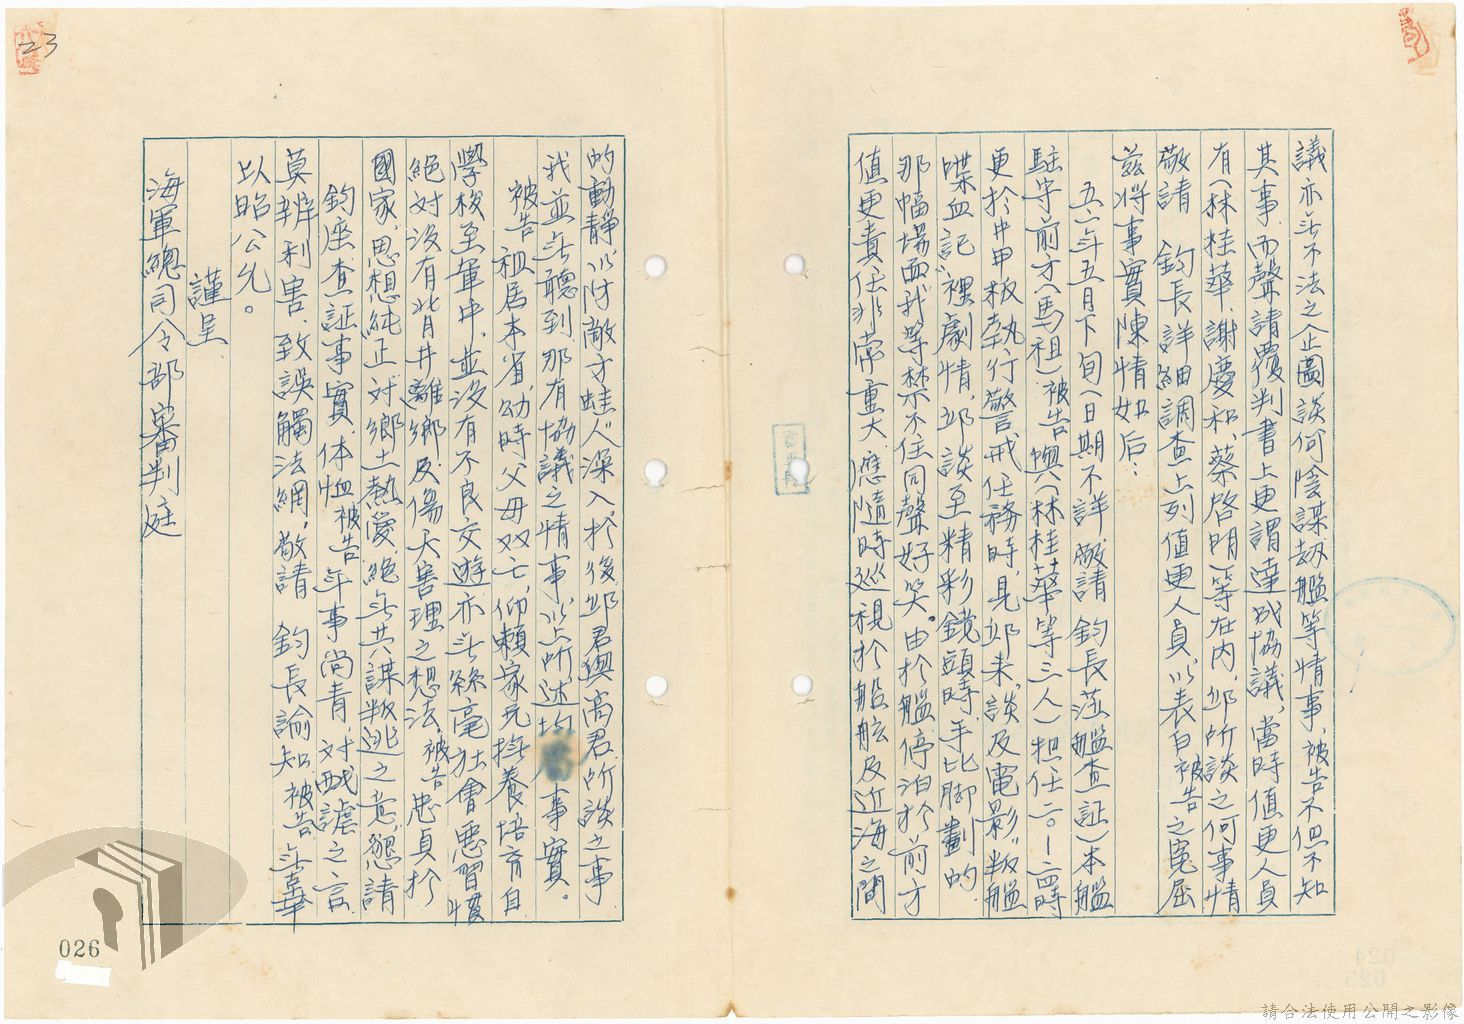 議亦無不法之企圖談何陰謀劫艦等情事、被告不但不知
其事、而聲請覆判書上更謂達成協議，當時值更人員
有（林桂華、謝慶和、蔡啓明）等在內，邱所談之何事情
敬請　鈞長詳細調查上列值更人員，以表白被告之冤屈
茲將事實陳情如后：
五六年五月下旬（日期不詳，敬請鈞長蒞艦查証）本艦
駐守前方（馬祖）被告與（林桂華等三人）担任二〇—二四時
更於中甲板執行警戒任務時，見邱来、談及電影“叛艦
喋血記”裡劇情，邱談至精彩鏡頭時，手比脚劃的
那幅場面我等禁不住同聲好笑。由於艦停泊於前方
值更責任非常重大，應隨時巡視於船舷及近海之間
的動靜，以防敵方“蛙人”深入，於後邱君與高君所談之事
我並無聽到，那有協議之情事，以上所述均屬事實。
被告祖居本省，幼時父母双亡，仰賴家兄撫養培育自
學校至軍中，並沒有不良交遊，亦無絲毫社會惡習，
絕对沒有背井離鄉及傷天害理之想法，被告忠貞於
國家，思想純正，对鄉土熱愛，絕無共謀叛逃之意，懇請
鈞座查証事實，体恤被告年事尚青，对戲謔之言
莫辨利害，致誤觸法網，敬請　鈞長諭知被告無罪
以昭公允。
謹呈
海軍總司令部審判庭
23
026
024
025
請合法使用公開之影像